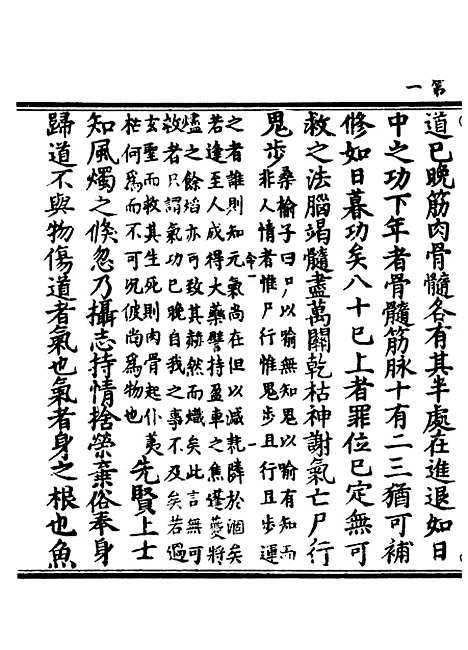 第一
道已晚筋肉骨髓各有其半處在進退如日
中之功下年者骨髓筋脉十有二三猶可補
修如日暮功矣八十已上者罪位已定無可
救之法腦竭髓盡萬關乾枯神謝氣亡尸行
鬼步桑榆子曰尸以喻無知鬼以喻有知而
非人情者惟尸行惟鬼步且行且步運
之者誰則知元氣尚在但以減耗隣於涸矣
若逢至人成得大藥譬持盈車之焦蓬爇將
燼之餘焰亦可致其赫然而熾矣此言無可
救者只謂氣功已晚自我之事不及矣若過
玄聖而救其生死則肉骨起仆夷
枉何為而不可况彼尚為物也先賢上士
知風燭之倏忽乃攝志持情捨榮棄俗奉身
歸道不與物傷道者氣也氣者身之根也魚